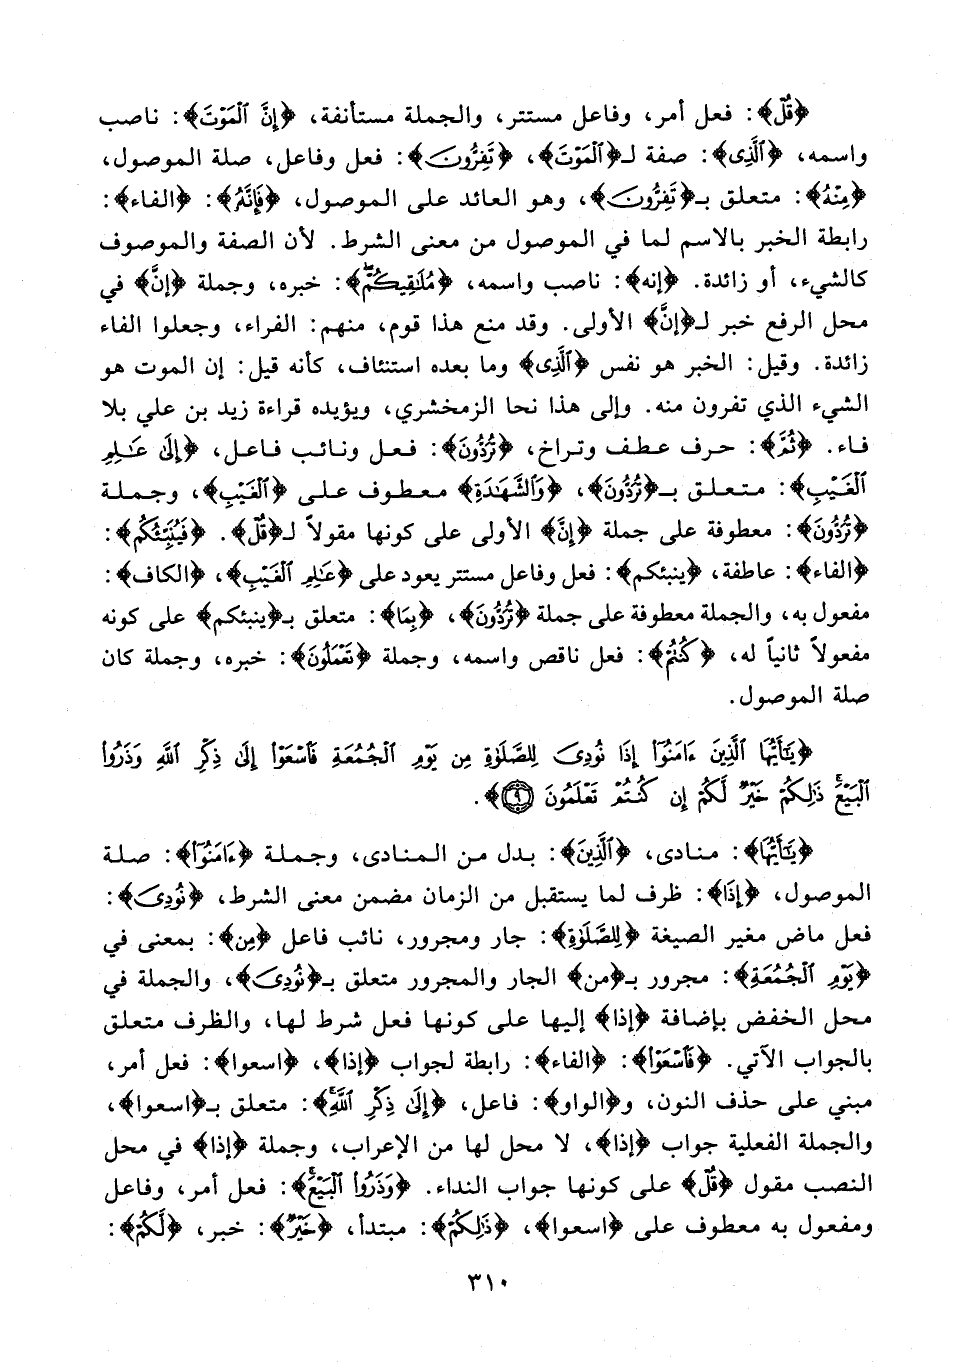 ﴿قُلْ﴾: فعل أمر، وفاعل مستتر، والجملة مستأنفة، ﴿إِنَّ ٱلْمَوْتَ﴾: ناصب
واسمه، ﴿ٱلَّذِى﴾: صفة لـ﴿ٱلْمَوْتَ﴾، ﴿تَفِرُّونَ﴾: فعل وفاعل، صلة الموصول،
﴿مِنْهُ﴾: متعلق بـ﴿تَفِرُّونَ﴾، وهو العائد على الموصول، ﴿فَإِنَّهُۥ﴾: ﴿الفاء﴾:
رابطة الخبر بالاسم لما في الموصول من معنى الشرط. لأن الصفة والموصوف
كالشيء، أو زائدة. ﴿إنه﴾: ناصب واسمه، ﴿مُلَٰقِيكُمْ﴾: خبره، وجملة ﴿إنَّ﴾ في
محل الرفع خبر لـ﴿إنَّ﴾ الأولى. وقد منع هذا قوم، منهم: الفراء، وجعلوا الفاء
زائدة. وقيل: الخبر هو نفس ﴿ٱلَّذِى﴾ وما بعده استئناف، كأنه قيل: إن الموت هو
الشيء الذي تفرون منه. وإلى هذا نحا الزمخشري، ويؤيده قراءة زيد بن علي بلا
فاء. ﴿ثُمَّ﴾: حرف عطف وتراخ، ﴿تُرَدُّونَ﴾: فعل ونائب فاعل، ﴿إِلَىٰ عَٰلِمِ
ٱلْغَيْبِ﴾: متعلق بـ﴿تُرَدُّونَ﴾، ﴿وَٱلشَّهَٰدَةِ﴾ معطوف على ﴿ٱلْغَيْبِ﴾، وجملة
﴿تُرَدُّونَ﴾: معطوفة على جملة ﴿إِنَّ﴾ الأولى على كونها مقولاً لـ﴿قُلْ﴾. ﴿فَيُنَبِّئُكُم﴾:
﴿الفاء﴾: عاطفة، ﴿ينبئكم﴾: فعل وفاعل مستتر يعود على ﴿عَٰلِمِ ٱلْغَيْبِ﴾، ﴿الكاف﴾:
مفعول به، والجملة معطوفة على جملة ﴿تُرَدُّونَ﴾، ﴿بِمَا﴾: متعلق بـ﴿ينبئكم﴾ على كونه
مفعولاً ثانياً له، ﴿كُنتُمْ﴾: فعل ناقص واسمه، وجملة ﴿تَعْمَلُونَ﴾: خبره، وجملة كان
صلة الموصول.
﴿يَٰٓأَيُّهَا ٱلَّذِينَ ءَامَنُوٓا۟ إِذَا نُودِىَ لِلصَّلَوٰةِ مِن يَوْمِ ٱلْجُمُعَةِ فَٱسْعَوْا۟ إِلَىٰ ذِكْرِ ٱللَّهِ وَذَرُوا۟
ٱلْبَيْعَ ۚ ذَٰلِكُمْ خَيْرٌ لَّكُمْ إِن كُنتُمْ تَعْلَمُونَ ٩﴾.
﴿يَٰٓأَيُّهَا﴾: منادى، ﴿ٱلَّذِينَ﴾: بدل من المنادى، وجملة ﴿ءَامَنُوٓا۟﴾: صلة
الموصول، ﴿إِذَا﴾: ظرف لما يستقبل من الزمان مضمن معنى الشرط، ﴿نُودِىَ﴾:
فعل ماض مغير الصيغة ﴿لِلصَّلَوٰةِ﴾: جار ومجرور، نائب فاعل ﴿مِن﴾: بمعنى في
﴿يَوْمِ ٱلْجُمُعَةِ﴾: مجرور بـ﴿من﴾ الجار والمجرور متعلق بـ﴿نُودِىَ﴾، والجملة في
محل الخفض بإضافة ﴿إذا﴾ إليها على كونها فعل شرط لها، والظرف متعلق
بالجواب الآتي. ﴿فَٱسْعَوْا۟﴾: ﴿الفاء﴾: رابطة لجواب ﴿إذا﴾، ﴿اسعوا﴾: فعل أمر،
مبني على حذف النون، و﴿الواو﴾: فاعل، ﴿إِلَىٰ ذِكْرِ ٱللَّهِ ۚ﴾: متعلق بـ﴿اسعوا﴾،
والجملة الفعلية جواب ﴿إذا﴾، لا محل لها من الإعراب، وجملة ﴿إذا﴾ في محل
النصب مقول ﴿قُلْ﴾ على كونها جواب النداء. ﴿وَذَرُوا۟ ٱلْبَيْعَ ۚ﴾: فعل أمر، وفاعل
ومفعول به معطوف على ﴿اسعوا﴾، ﴿ذَٰلِكُمْ﴾: مبتدأ، ﴿خَيْرٌ﴾: خبر، ﴿لَّكُمْ﴾:
٣١٠